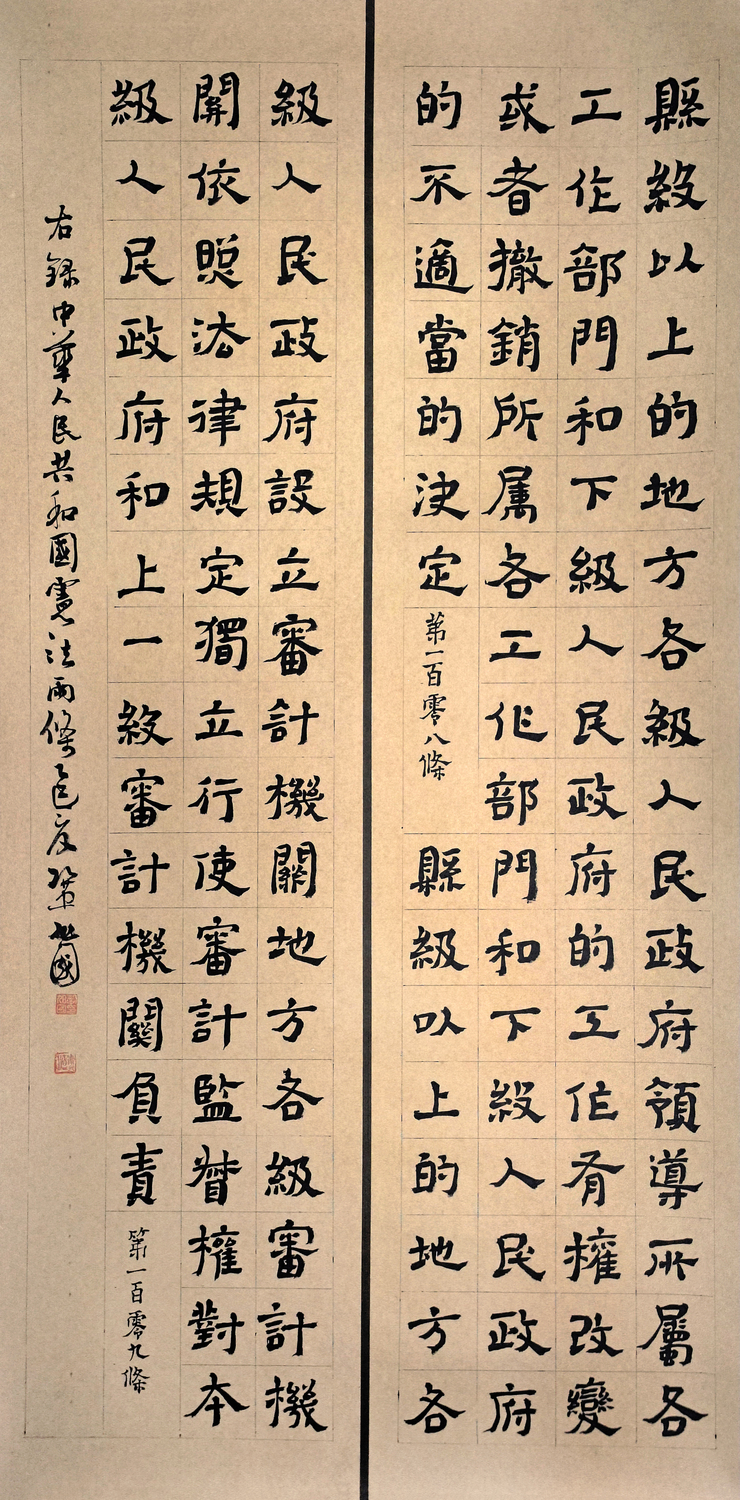 縣級以上的地方各級人民政府領導所屬各
工作部門和下級人民政府的工作有權改變
或者撤銷所属各工作部門和下級人民政府
的不適當的決定 第一百零八條 縣級以上的地方各
級人民政府設立審計機關地方各級審計機
關依照法律規定獨立行使審計監督權對本
級人民政府和上一級審計機關負責 第一百零九條
右錄中華人民共和國憲法兩條